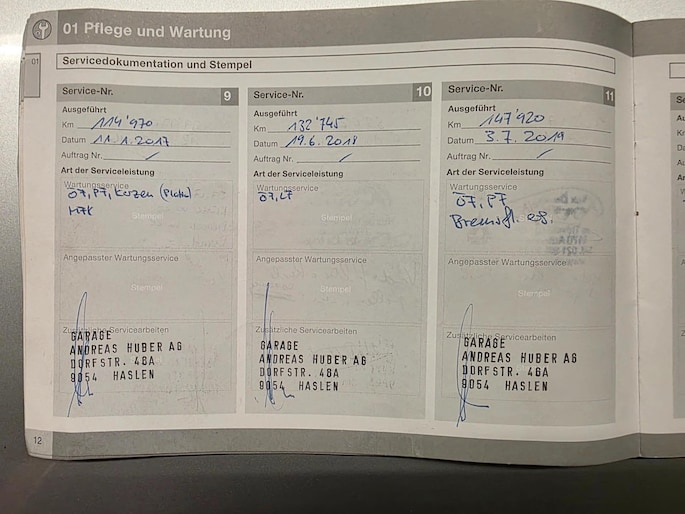 01 Pflege und Wartung
01
Servicedokumentation und Stempel
Service-Nr. 9
Ausgeführt
Km 114'970
Datum 11.1.2017
Auftrag Nr. /
Art der Serviceleistung
Wartungsservice
ÖF, PF, Kerzen (Platin)
Stempel
Angepasster Wartungsservice
Stempel
Zusätzliche Servicearbeiten
GARAGE
ANDREAS HUBER AG
DORFSTR. 48A
9054 HASLEN
Service-Nr. 10
Ausgeführt
Km 132'745
Datum 19.6.2018
Auftrag Nr. /
Art der Serviceleistung
Wartungsservice
ÖF, LF
Stempel
Angepasster Wartungsservice
Stempel
Zusätzliche Servicearbeiten
GARAGE
ANDREAS HUBER AG
DORFSTR. 48A
9054 HASLEN
Service-Nr. 11
Ausgeführt
Km 147'920
Datum 3.7.2019
Auftrag Nr. /
Art der Serviceleistung
Wartungsservice
ÖF, PF
Bremsfl. ers.
Angepasster Wartungsservice
Stempel
Zusätzliche Servicearbeiten
GARAGE
ANDREAS HUBER AG
DORFSTR. 48A
9054 HASLEN
12